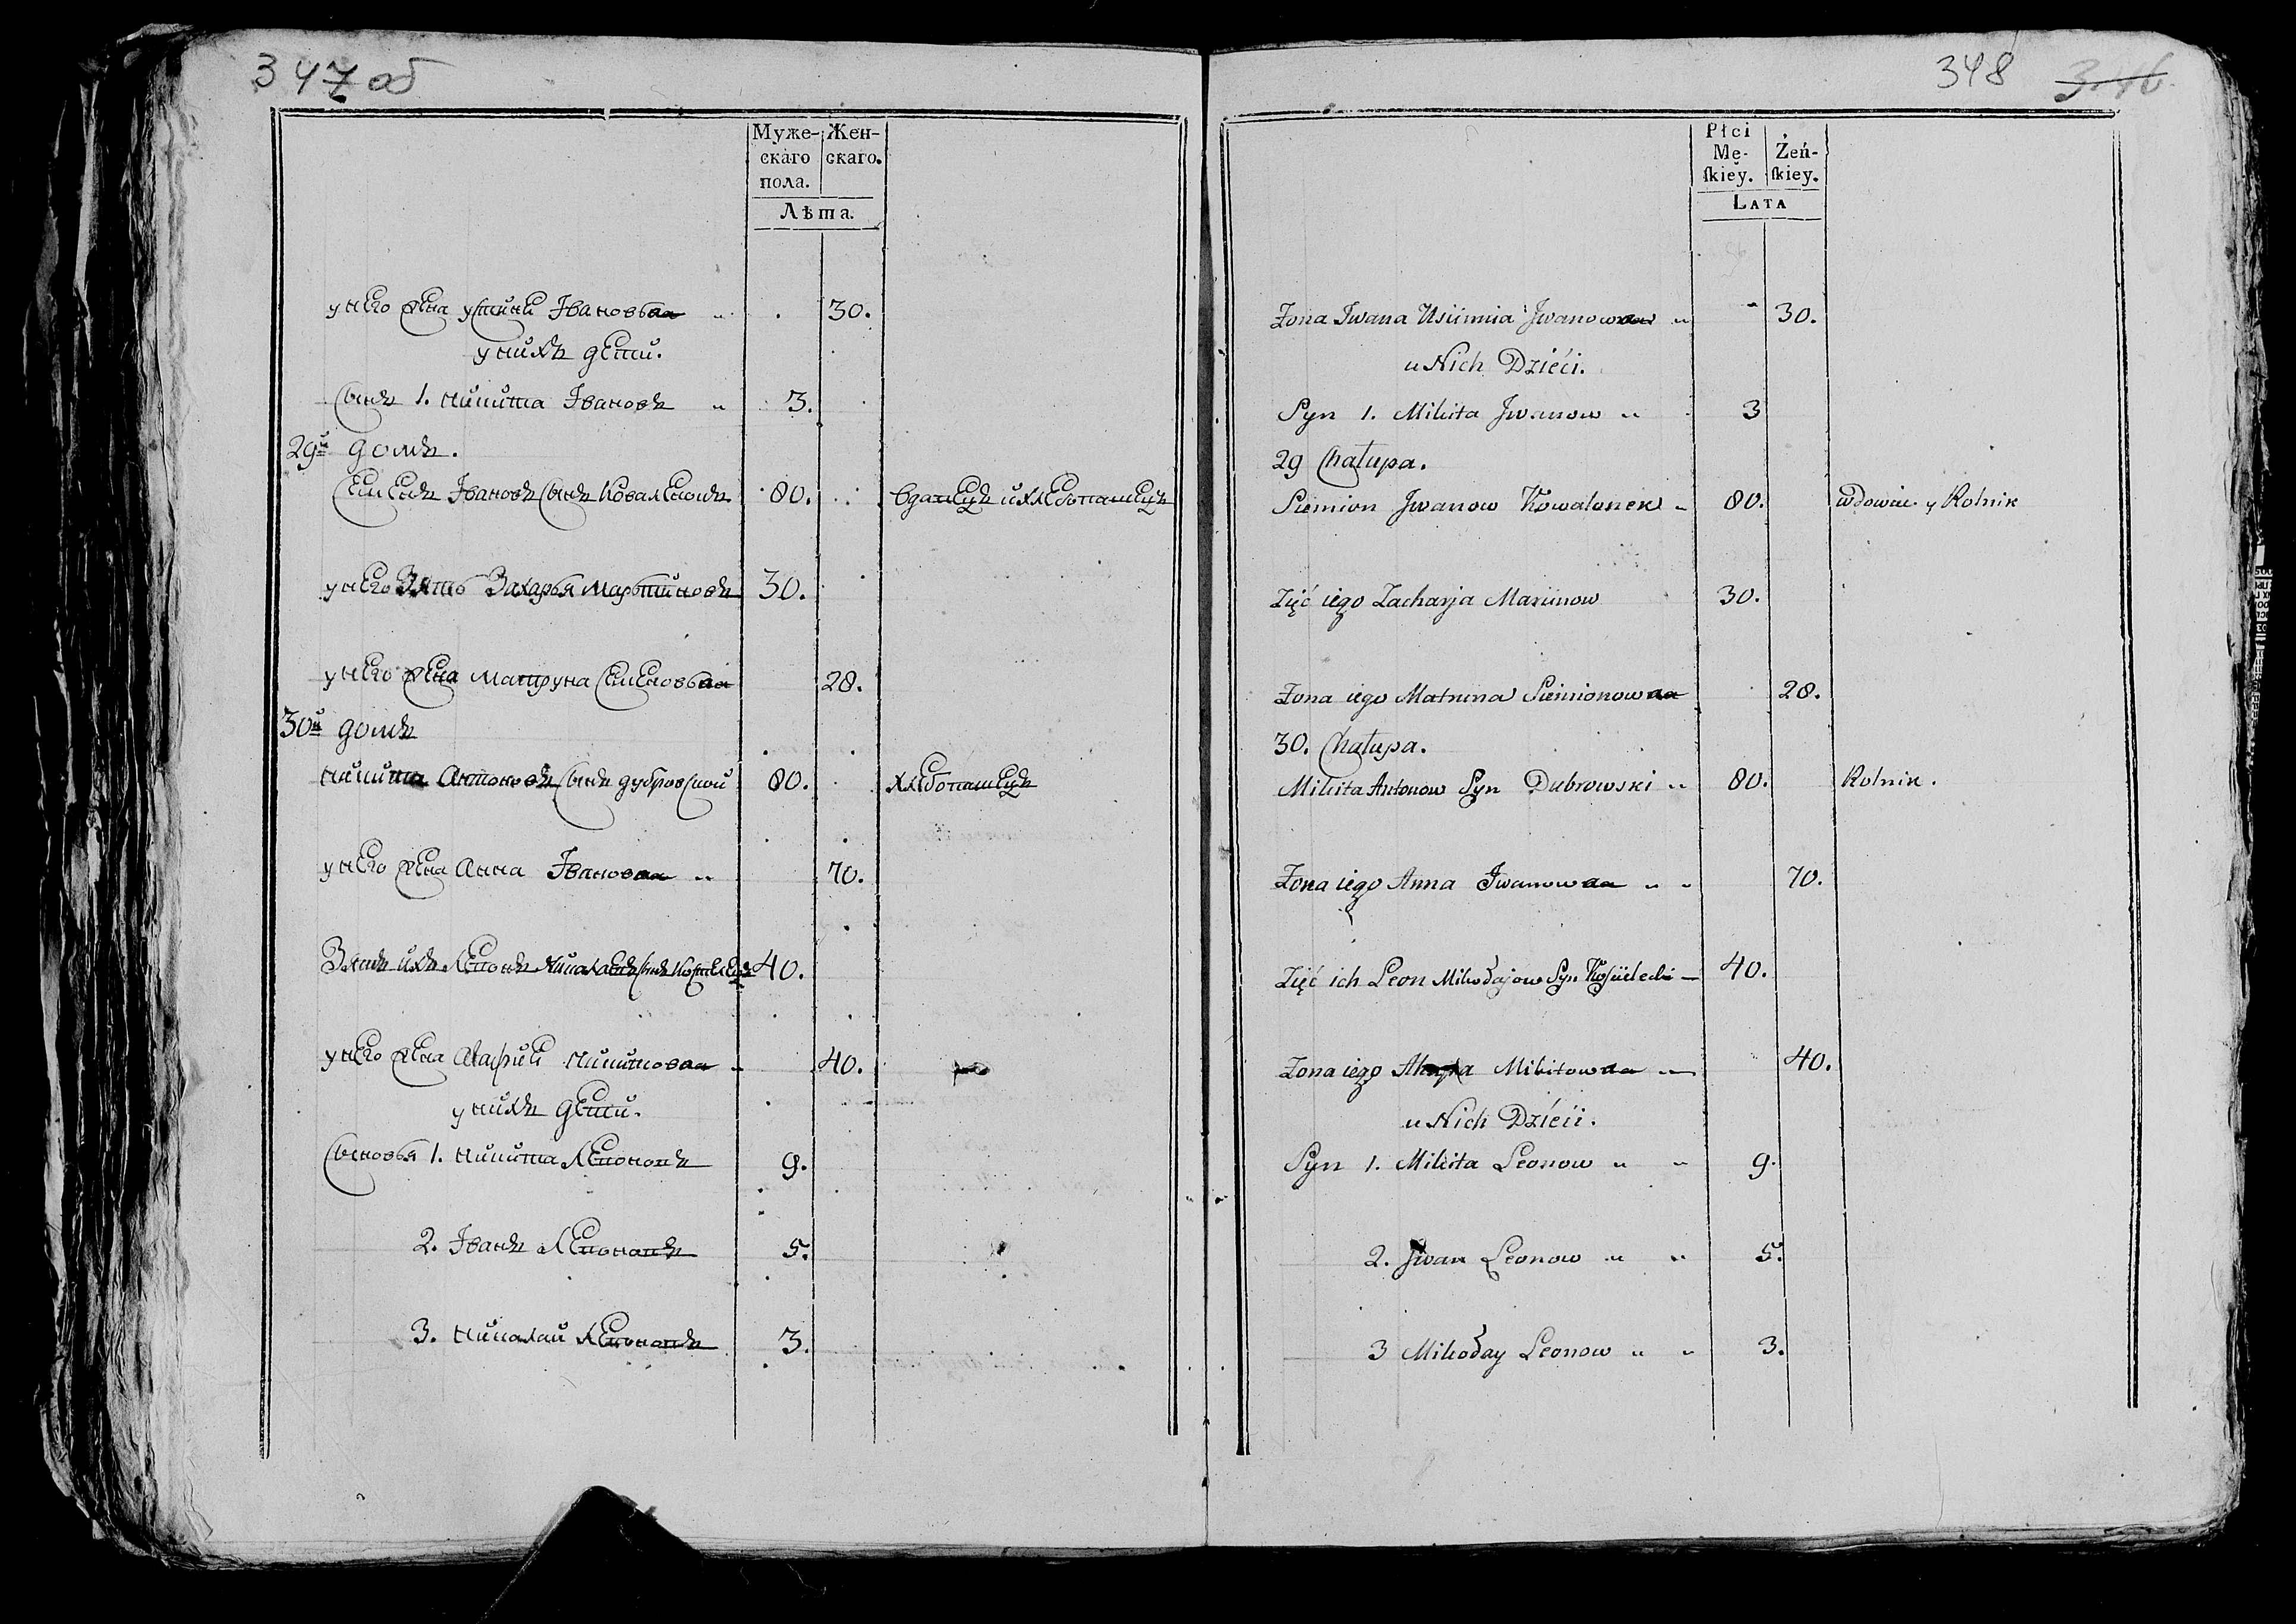 347 об
Муже-
скаго
пола.
Жен-
скаго.
Лѣта.
у него жена устинѣ Івановъна 30.
у нихъ дети.
Сынъ 1. никита Івановъ 3.
29й домъ.
Семенъ Івановъ Сынъ Коваленокъ 80. вдавецъ и хлебопашецъ
у него Зять Захарья Мартиновъ 30.
у него жена матруна Семеновъна 28.
30й домъ
никита Антоновъ Сынъ дубровской 80. хлебопашецъ
у него жена Анна Івановна 70.
Зять ихъ Леонъ 40.
у него жена никитовна 40.
у нихъ дети.
Сыновья 1. никита 9.
2. Іванъ 5.
3. николай 3.
348 346.
Płci
Mę-
ſkiey.
Żeń-
ſkiey.
LATA
Zona Iwana Usiimia Jwanowna 30.
u Nich Dzieći.
Syn 1. Mikita Jwanow 3
29 Chałupa.
Siemion Jwanow Kowalonek 80. wdowiec y Rolnik
Zięć iego Zacharja Marcinow 30.
Zona iego Matruna Siemionowna 28.
30. Chałupa.
Mikita Antonow Syn Dubrowski 80. Rolnik.
Zona iego Anna Jwanowna 70.
Zięć ich Leon Mikołajow Syn 40.
Zona iego Mikitowna 40.
u Nich Dzieći.
Syn 1. Mikita Leonow 9.
2. Jwan Leonow 5.
3 Mikołay Leonow 3.